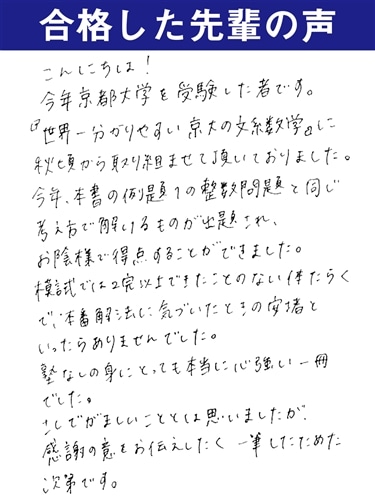 合格した先輩の声
こんにちは！
今年京都大学を受験した者です。
『世界一分かりやすい京大の文系数学』に
秋頃から取り組ませて頂いておりました。
今年、本書の例題7の整数問題と同じ
考え方で解けるものが出題され、
お陰様で得点することができました。
模試では2完以上できたことのない体たらく
で、本番解法に気づいたときの安堵と
いったらありませんでした。
塾なしの身にとっても本当に心強い一冊
でした。
さしでがましいこととは思いましたが、
感謝の意をお伝えしたく一筆したためた
次第です。